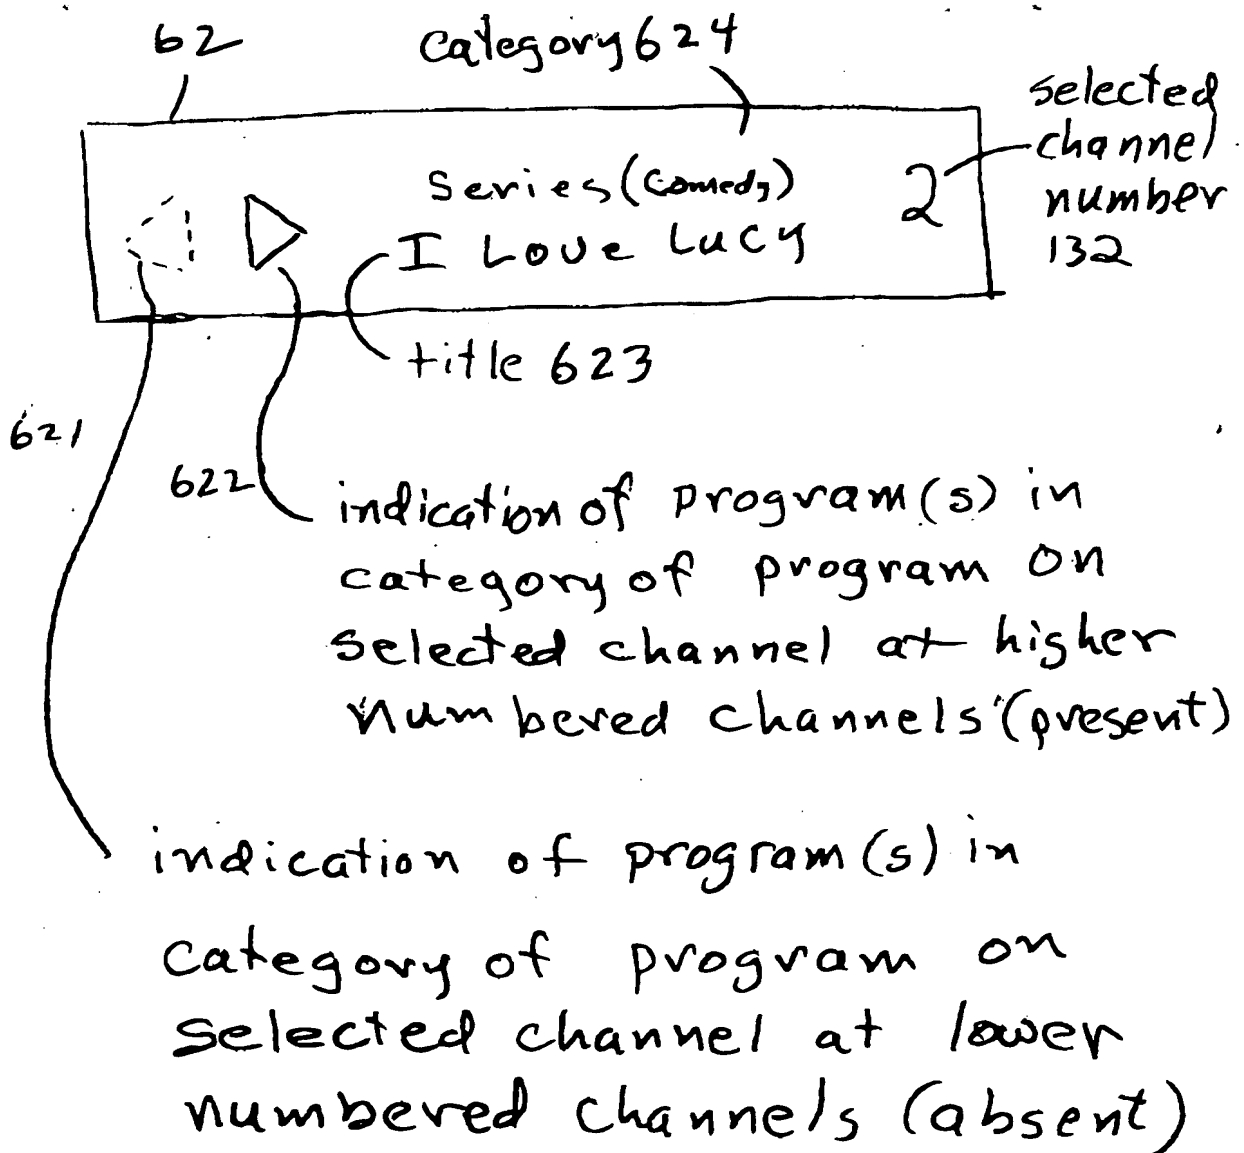 62
category 624
selected
channel
number
132
Series (Comedy)
2
I Love Lucy
title 623
621
622
indication of program(s) in
category of program on
selected channel at higher
numbered channels (present)
indication of program(s) in
category of program on
selected channel at lower
numbered channels (absent)